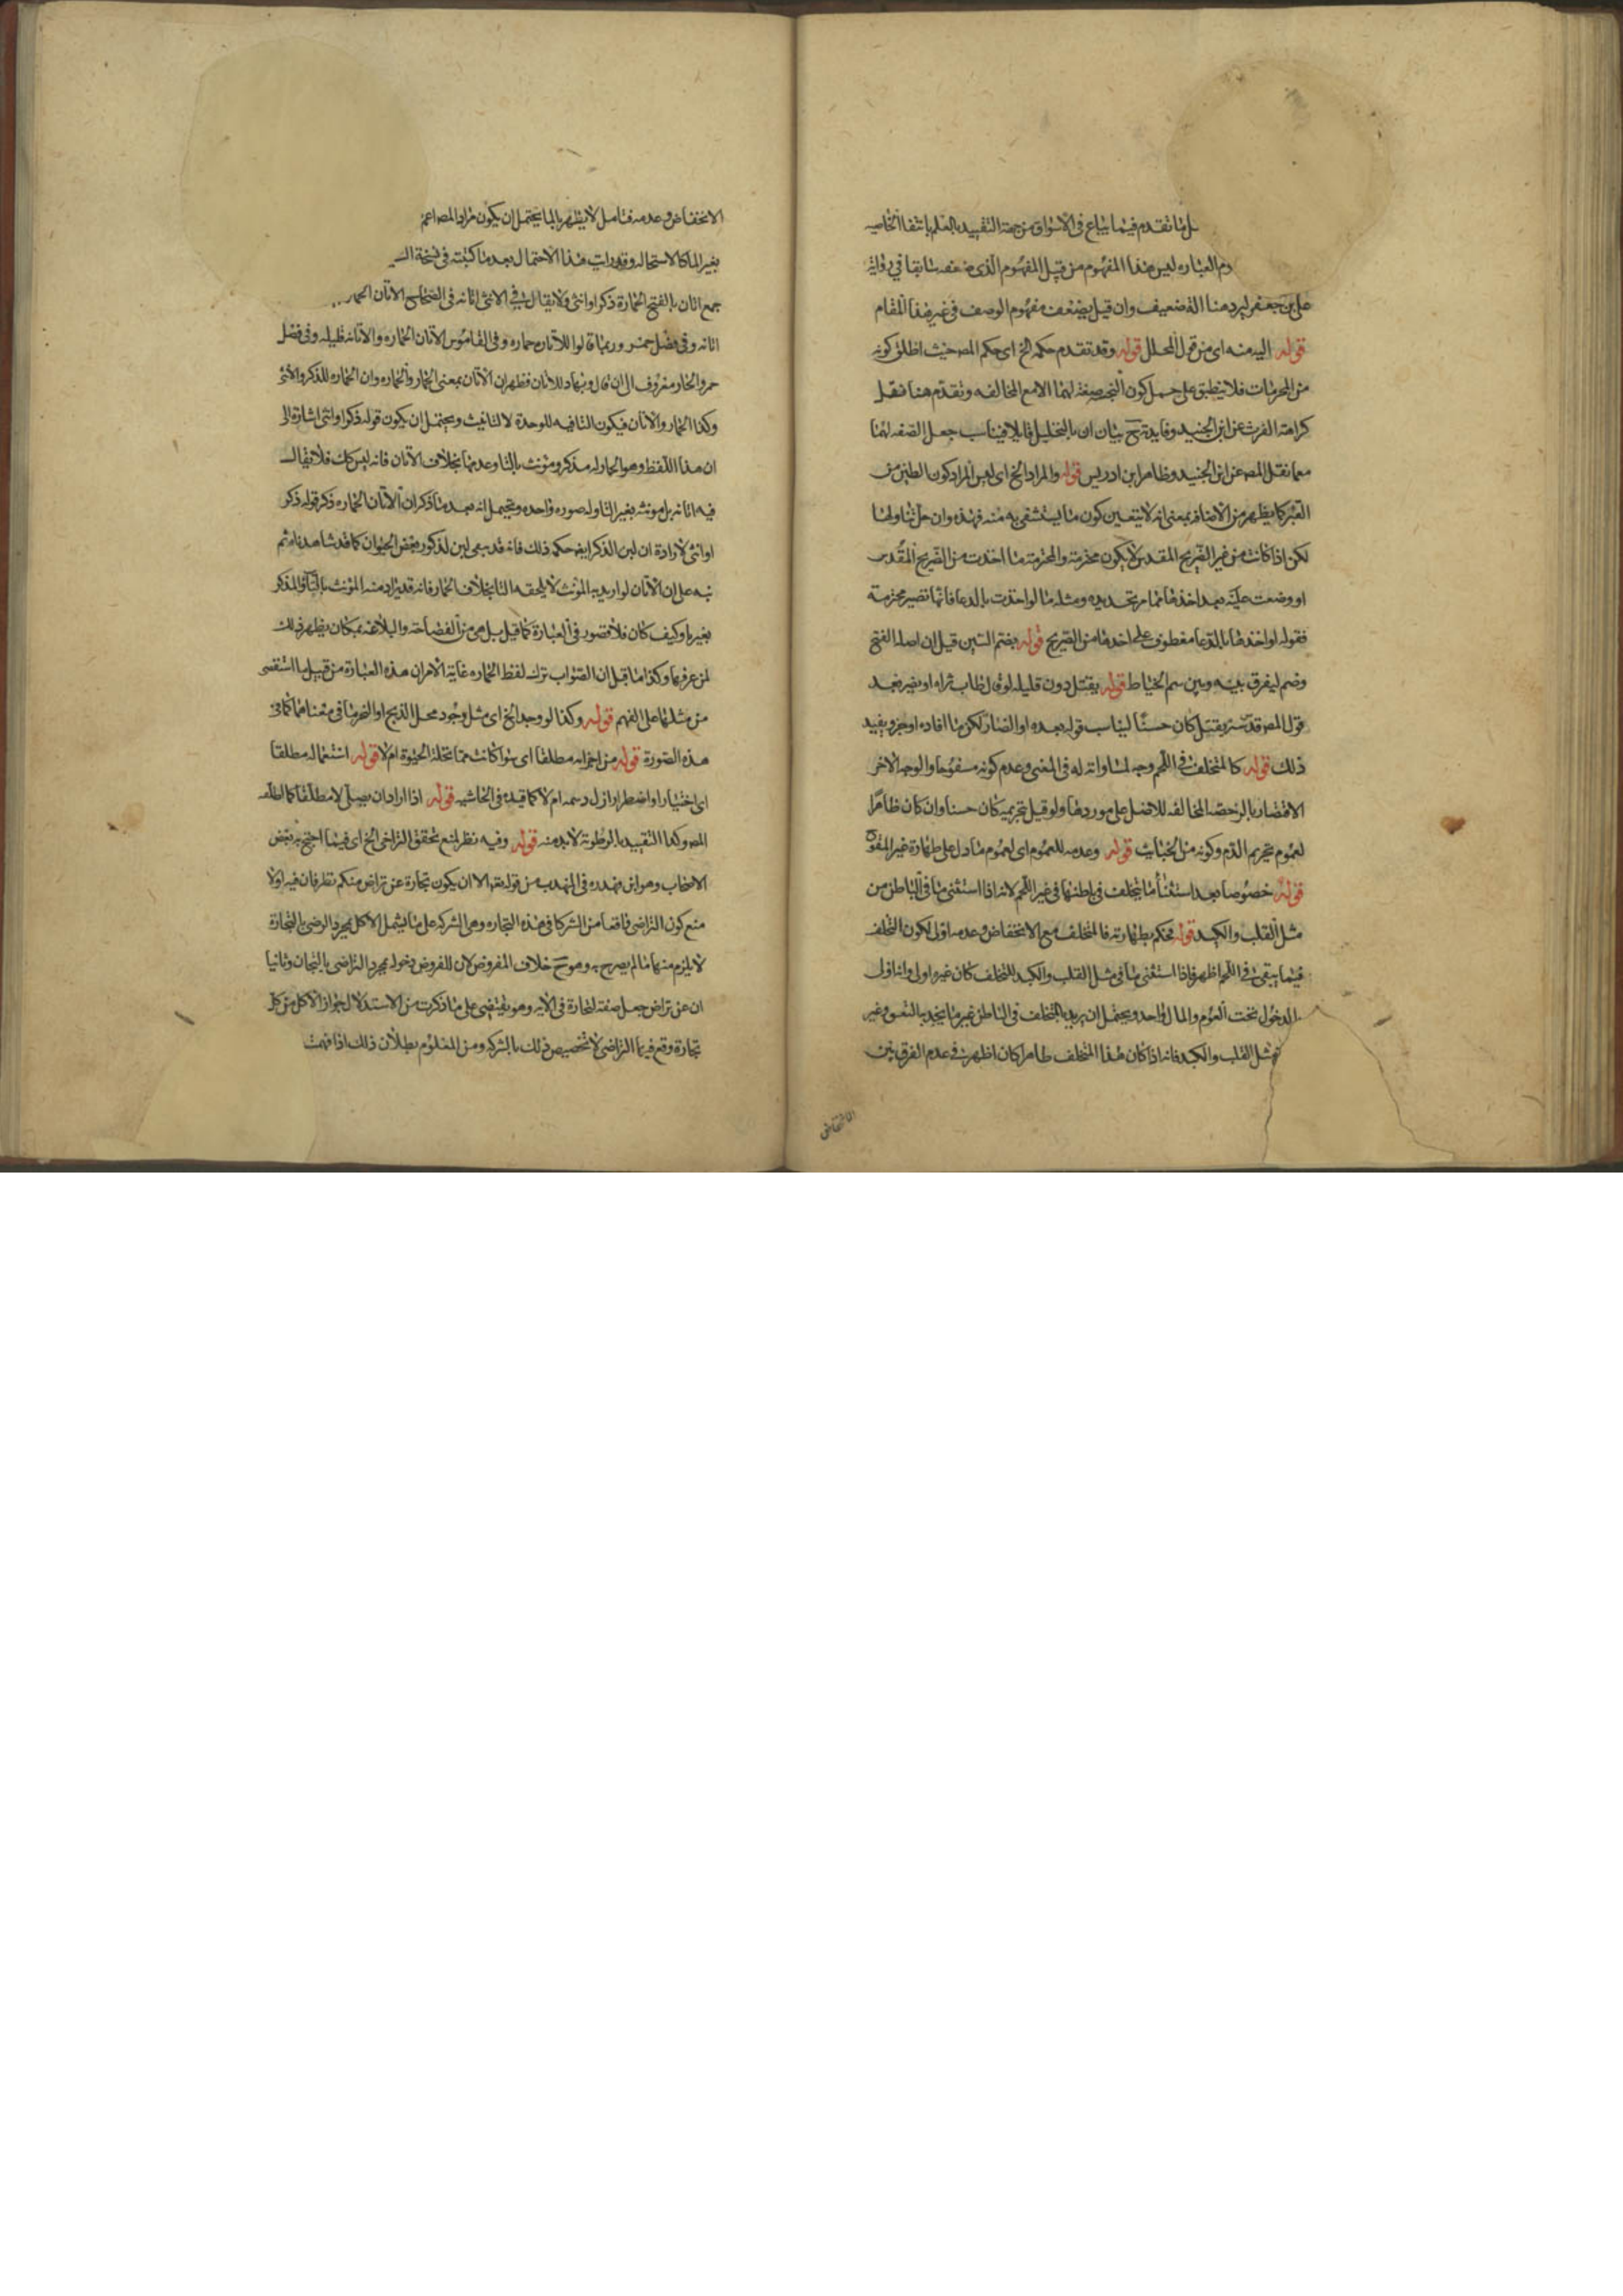 ل ما تقدم فيما يباع فى الاسواق من جهة التقييد بالعلم بانتفا الخاصيه
وم العباره ليس هذا المفهوم من قبيل المفهوم الذى ضعفه سابقا فى رواية
على بن جعفر ليرد هنا انه ضعيف وان قيل بضعف مفهوم الوصف فى غير هذا المقام
قوله اليه منه اى من قول المحلل قوله وقد تقدم حكمه الخ اى حكم المص حيث اطلق كونه
من المحرمات فلا ينطبق على حمل كون النجس صفة لهما الا مع المخالفه وتقدم هنا فنقل
كراهة الفرث عن ابن الجنيد وفايدته ح بيان ان بالتحليل قايلا فيناسب جعل الصفه لهما
معما نقل المص عن ابن الجنيد وظاهر ابن ادريس قوله والمراد الخ اى ليس المراد كون الطين من
القبر كما يظهر من الاضافه بمعنى انه لا يتعين كون ما يستشفى به منه فهذه وان حل تناولها
لكن اذا كانت من غير الضريح المقدس لا يكون محترمة والمحترمة ما اخذت من الضريح المقدس
او وضعت عليه بعد اخذها مما مر تحديده ومثله ما لو اخذت بالدعا فانها تصير محترمة
فقوله او اخذها بالدعا معطوف على اخذها من الضريح قوله بضم السين قيل ان اصله الفتح
وضم ليفرق بينه وبين سم الخياط قوله يقتل دون قليله لو قال طاب ثراه او يضر بعد
قول المص قدس سره يقتل كان حسنًا ليناسب قوله بعده او الضار لكن ما افاده اوجز ويفيد
ذلك قوله كالمتخلف فى اللحم وجه لمساواته له فى المعنى وعدم كونه مسفوحا والوجه الاخر
الاقتصار بالرخصه المخالفه للاصل على موردها ولو قيل بتحريمه كان حسنا وان كان ظاهرًا
لعموم تحريم الدم وكونه من الخبايث قوله وعدمه للعموم اى لعموم ما دل على طهارة غير المسفوح
قوله خصوصا بعد استثنا ما يتخلف فى باطنها فى غير اللحم لانه اذا استثنى ما فى الباطن من
مثل القلب والكبد قوله فحكم بطهارته فالمتخلف مع الانخفاض وعدمه اولى لكون التخلف
فيما يبقى فى اللحم اظهر فاذا استثنى ما فى مثل القلب والكبد للتخلف كان غيره اولى وانه اولى
الدخول تحت العموم والمال واحد ويحتمل ان يريد بالتخلف فى الباطن غير ما يجذبه النفس وغير
مثل القلب والكبد فانه اذا كان هذا المتخلف طاهرا كان اظهر فى عدم الفرق بين
الانخفاض
الانخفاض وعدمه فتامل لا يطهر بالما يحتمل ان يكون مراد المص اعم
بغير الما كالاستحاله وقد رايت هذا الاحتمال بعد ما كتبته فى نسخة
جمع اتان بالفتح الحمارة ذكرا او انثى ولا يقال فى الانثى اتانه فى الصحاح الاتان الحمار
اتانه وفى فصل حمر وربما قالوا للاتان حماره وفى القاموس الاتان الحماره والاتانه قليله وفى فصل
حمر والحمار معروف الى ان قال وبها للاتان فظهر ان الاتان بمعنى الحمار والحماره وان الحماره للذكر والانثى
وكذا الحمار والاتان فيكون التا فيه للوحدة لا للتانيث ويحتمل ان يكون قوله ذكرا او انثى اشارة الى
ان هذا اللفظ وهو الحمار له مذكر ومونث بالتا وعدمها بخلاف الاتان فانه ليس كك فلا يقال
فيه اتانه بل مونثه بغير التا وله صوره واحده ويحتمل انه بعد ما ذكر ان الاتان الحماره ذكر قوله ذكر
او انثى لارادة ان لبن الذكر ايضا حكمه ذلك فانه قد لبن لذكور بعض الحيوان كما قد شاهدناه ثم
نبه على ان الاتان لو اريد به المونث لا يلحقه التا بخلاف الحمار فانه قد يراد منه المونث بالتا والمذكر
بغيرها وكيف كان فلا قصور فى العبارة كما قيل بل هى من الفصاحة والبلاغة بمكان يظهر ذلك
لمن عرفها وكذا ما قيل ان الصواب ترك لفظ الحماره غاية الامر ان هذه العبارة من قبيل ما استقصى
من مثلها على الفهم قوله وكذا لو وجد الخ اى مثل وجود محل الذبح او النحر ما فى معناهما كما فى
هذه الصورة قوله من اجزائه مطلقا اى سوا كانت مما تحله الحيوة ام لا قوله استعماله مطلقا
اى اختيارا او اضطرارا زال دسمه ام لا كما قيده فى الحاشيه قوله اذا اراد ان يصلى لا مطلقا كما اطلقه
المص وكذا التقييد بالرطوبة لا بد منه قوله وفيه نظر لمنع تحقق التراضى الخ اى فيما احتج به بعض
الاصحاب وهو ابن فى المهذب من قوله تعه الا ان يكون تجارة عن تراض منكم نظر فان فيه اولا
منع كون التراضى واقعا من الشركا فى هذه التجاره وهى الشركه على ما يشمل الاكل بمجرد الرضى بالتجارة
لا يلزم منها ما لم يصرح به وهو ح خلاف المفروض لان المفروض دخوله بمجرد التراضى بالتجارة وثانيا
ان عن تراض جعل صفة لتجارة فى الايه وهو يقتضى على ما ذكرت من الاستدلال جواز الاكل من كل
تجارة وقع فيها التراضى لا تخصيص ذلك بالشركه ومن المعلوم بطلان ذلك اذا فهمت